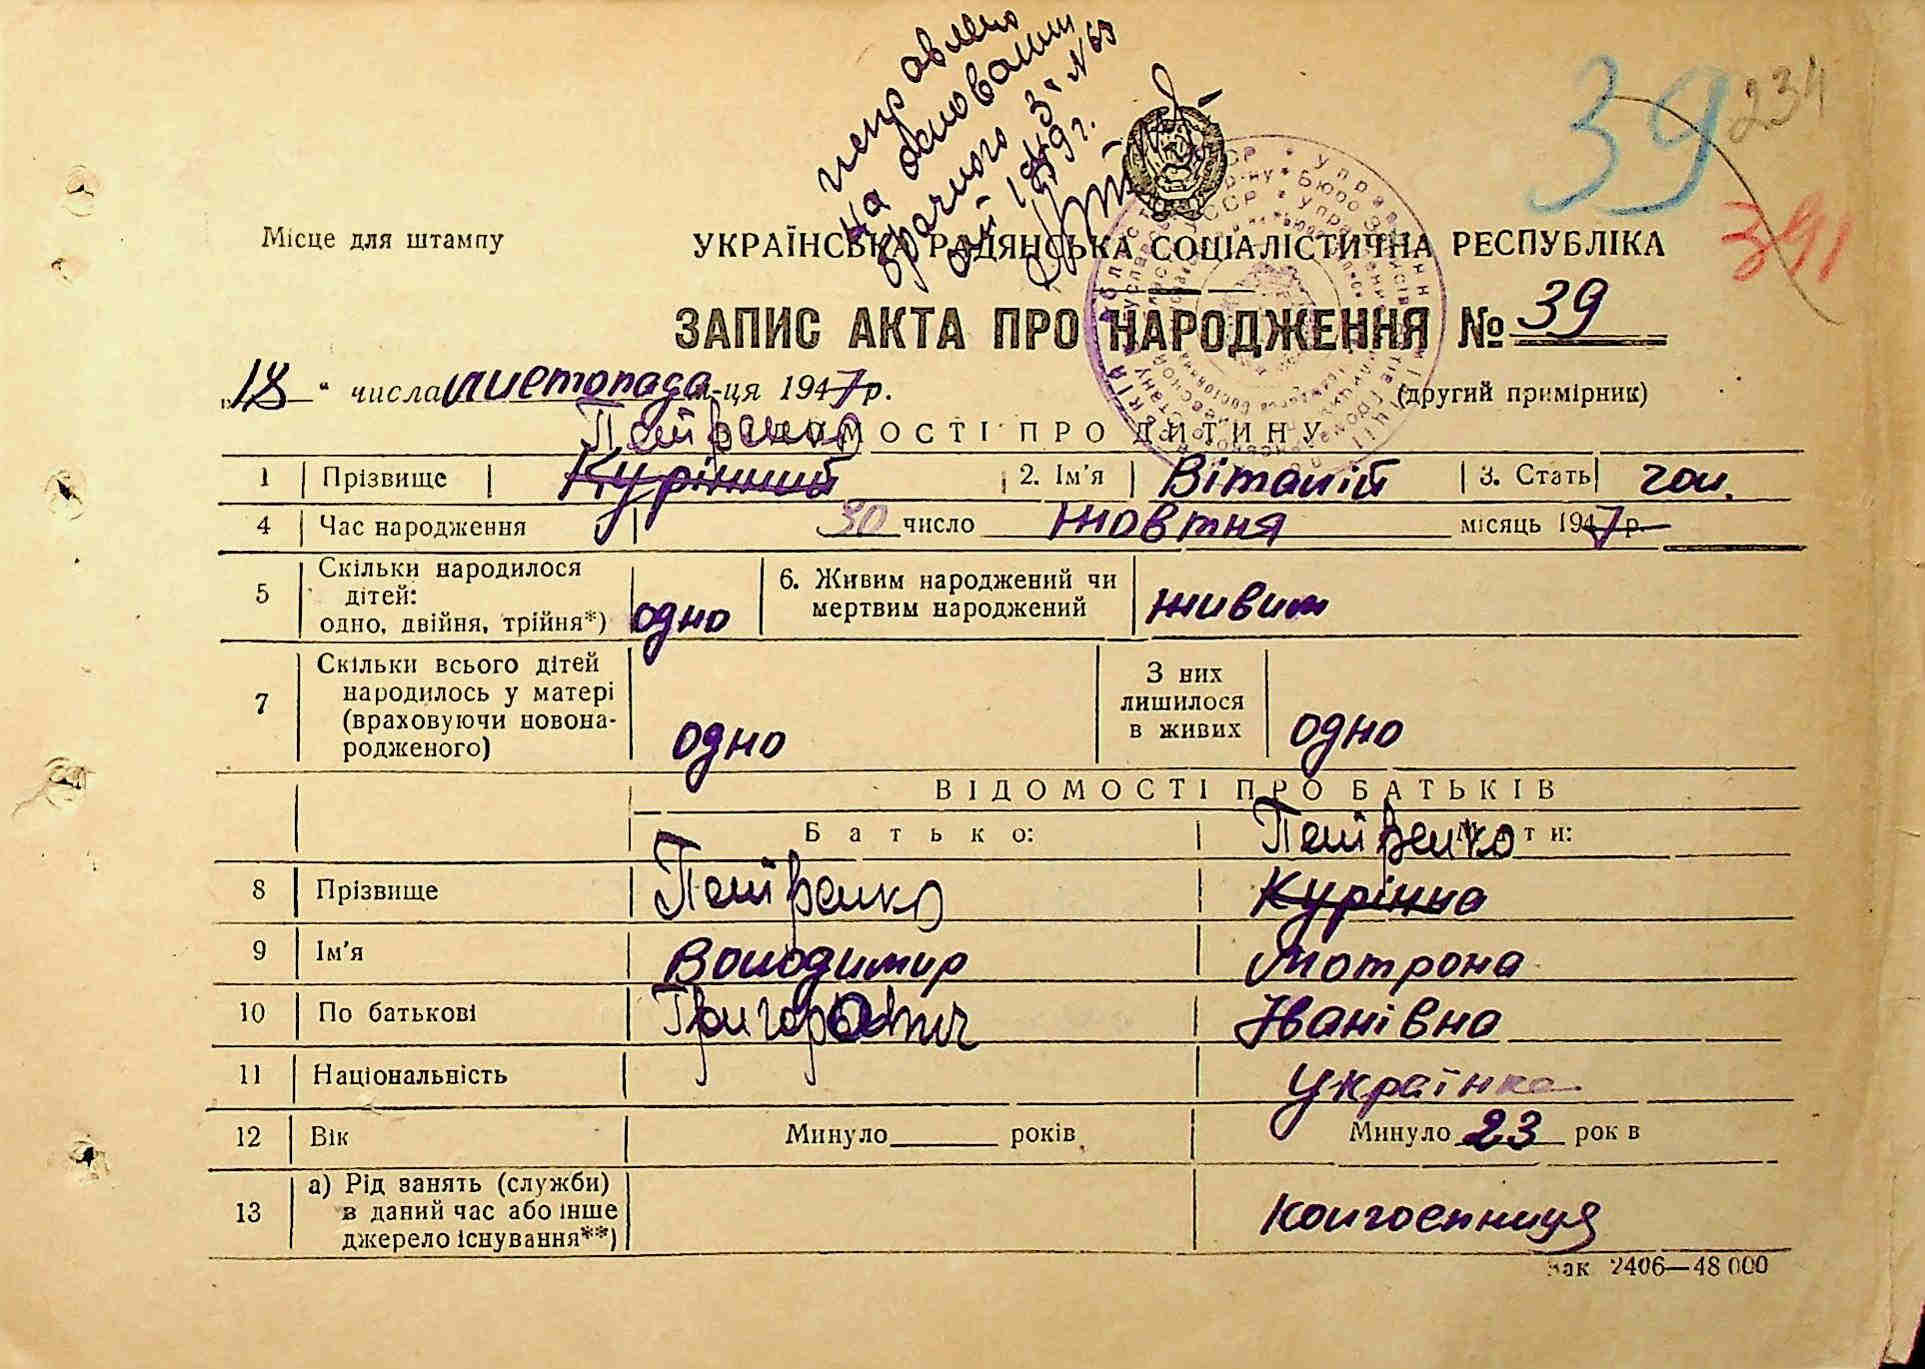 исправлено
на основании
брачного
1949 г.
39
234
391
Місце для штампу
УКРАЇНСЬКА РАДЯНСЬКА СОЦІАЛІСТИЧНА РЕСПУБЛІКА
ЗАПИС АКТА ПРО НАРОДЖЕННЯ № 39
„18" числа листопада м-ця 1947 р.
(другий примірник)
Петренко
ВІДОМОСТІ ПРО ДИТИНУ
1 Прізвище Курінний 2. Ім'я Віталій 3. Стать чол.
4 Час народження 30 число жовтня місяць 1947 р.
5 Скільки народилося дітей: одно, двійня, трійня*) одно 6. Живим народжений чи мертвим народжений живим
7 Скільки всього дітей народилось у матері (враховуючи новонародженого) одно З них лишилося в живих одно
ВІДОМОСТІ ПРО БАТЬКІВ
Батько: Мати:
Петренко
8 Прізвище Петренко Курінна
9 Ім'я Володимир Мотрона
10 По батькові Григорович Іванівна
11 Національність українка
12 Вік Минуло років Минуло 23 рок в
13 а) Рід занять (служби) в даний час або інше джерело існування**) колгоспниця
Зак 2406—48 000